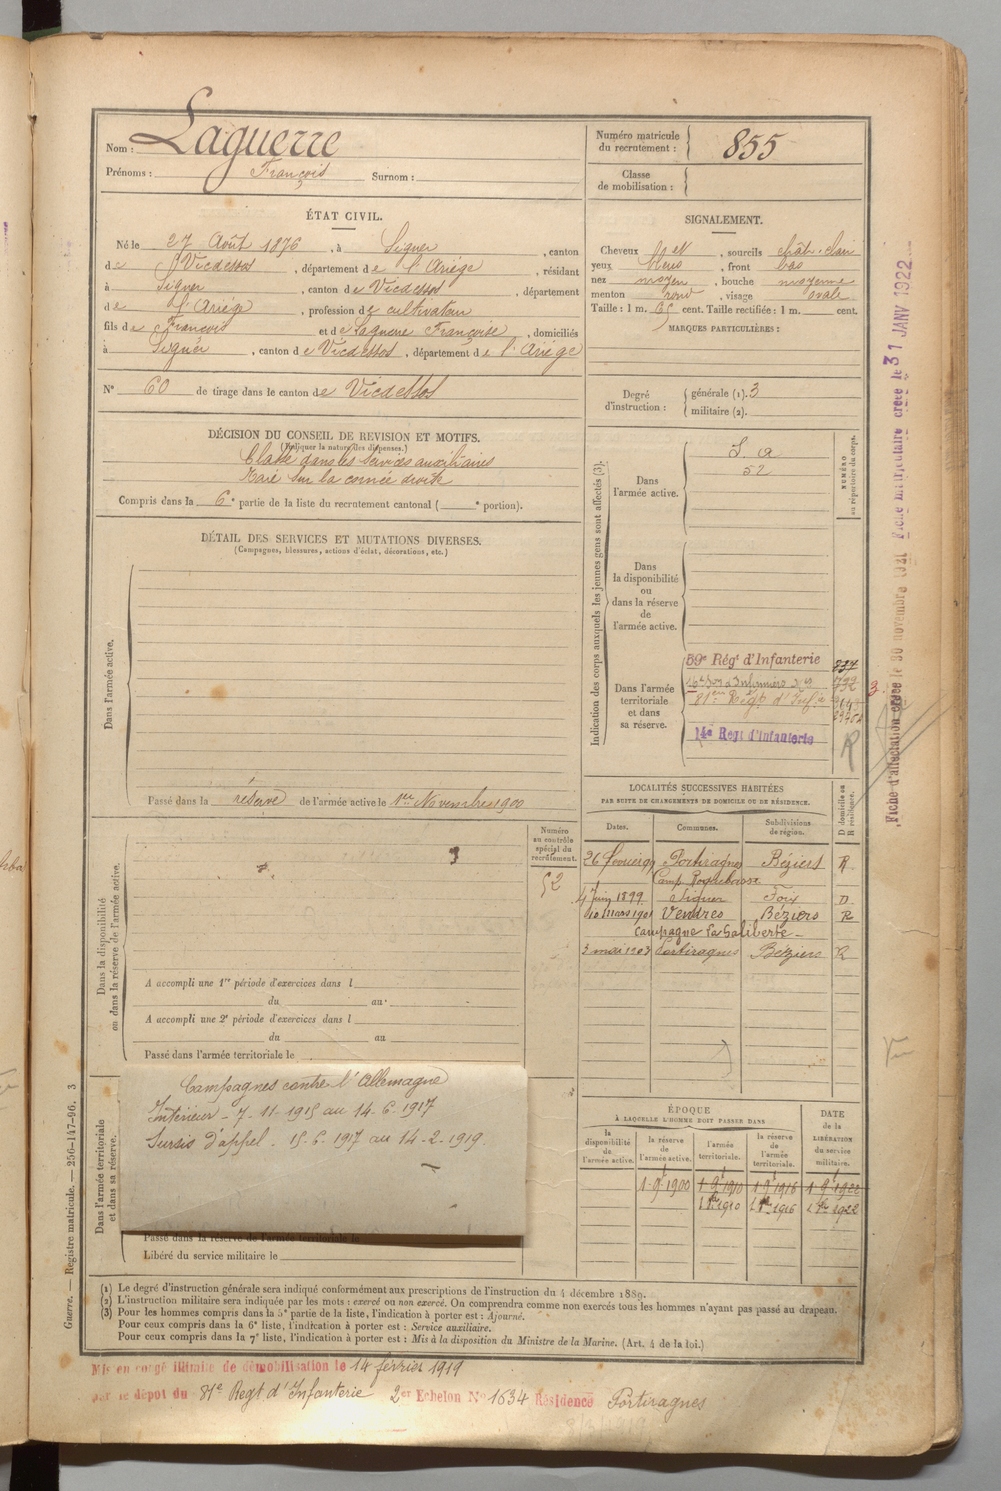 Nom : Laguerre
Prénoms : François Surnom :
Numéro matricule du recrutement : 855
Classe de mobilisation :
ÉTAT CIVIL.
Né le 27 Août 1876, à Siguer, canton
de Vicdessos, département de l'Ariège, résidant
à Siguer, canton de Vicdessos, département
de l'Ariège, profession de cultivateur
fils de François et de Laguerre Françoise, domiciliés
à Siguer, canton de Vicdessos, département de l'Ariège
N° 60 de tirage dans le canton de Vicdessos
SIGNALEMENT.
Cheveux , sourcils chât. clair
yeux bleus, front bas
nez moyen, bouche moyenne
menton rond, visage ovale
Taille : 1 m. 65 cent. Taille rectifiée : 1 m. cent.
MARQUES PARTICULIÈRES :
Degré d'instruction : générale (1). 3
militaire (2).
DÉCISION DU CONSEIL DE REVISION ET MOTIFS.
(Indiquer la nature des dispenses.)
Classé dans les services auxiliaires
Taie sur la cornée droite
Compris dans la 6e partie de la liste du recrutement cantonal ( e portion).
DÉTAIL DES SERVICES ET MUTATIONS DIVERSES.
(Campagnes, blessures, actions d'éclat, décorations, etc.)
Dans l'armée active.
Passé dans la réserve de l'armée active le 1er Novembre 1900
Indication des corps auxquels les jeunes gens sont affectés (3).
NUMÉRO au répertoire du corps.
Dans l'armée active.
S. a
52
Dans la disponibilité ou dans la réserve de l'armée active.
Dans l'armée territoriale et dans sa réserve.
59e Régt d'Infanterie
81em Regt d'Infie
14e Regt d'Infanterie
R
LOCALITÉS SUCCESSIVES HABITÉES
PAR SUITE DE CHANGEMENTS DE DOMICILE OU DE RÉSIDENCE.
D domicile ou R résidence.
Dates. Communes. Subdivisions de région.
Portiragnes Béziers R
4 Juin 1899 Siguer Foix D
10 Mars 1901 Vendres Béziers R
Campagne La Galiberte
3 mai 1903 Portiragnes Béziers R
Dans la disponibilité ou dans la réserve de l'armée active.
Numéro au contrôle spécial du recrutement.
52
A accompli une 1re période d'exercices dans l
du au
A accompli une 2e période d'exercices dans l
du au
Passé dans l'armée territoriale le
Dans l'armée territoriale et dans sa réserve.
Campagnes contre l'Allemagne
Intérieur - 7-11-1915 au 14-6-1917
Sursis d'appel. 15-6-1917 au 14-2-1919.
Passé dans la réserve de l'armée territoriale le
Libéré du service militaire le
ÉPOQUE
À LAQUELLE L'HOMME DOIT PASSER DANS
la disponibilité de l'armée active. la réserve de l'armée active. l'armée territoriale. la réserve de l'armée territoriale. DATE de la LIBÉRATION du service militaire.
1 9bre 1900 1 9bre 1910 1 9bre 1916 1 9bre 1922
1910 1916 1922
(1) Le degré d'instruction générale sera indiqué conformément aux prescriptions de l'instruction du 4 décembre 1889.
(2) L'instruction militaire sera indiquée par les mots : exercé ou non exercé. On comprendra comme non exercés tous les hommes n'ayant pas passé au drapeau.
(3) Pour les hommes compris dans la 5e partie de la liste, l'indication à porter est : Ajourné.
Pour ceux compris dans la 6e liste, l'indication à porter est : Service auxiliaire.
Pour ceux compris dans la 7e liste, l'indication à porter est : Mis à la disposition du Ministre de la Marine. (Art. 4 de la loi.)
Mis en congé illimité de démobilisation le 14 février 1919
par le dépôt du 81e Regt d'Infanterie 2er Echelon N° 1634 Résidence Portiragnes
Guerre. — Registre matricule. — 256-147-96. 3
Fiche d'affectation créée le 30 novembre 1921 Fiche matriculaire créée le 31 JANV 1922